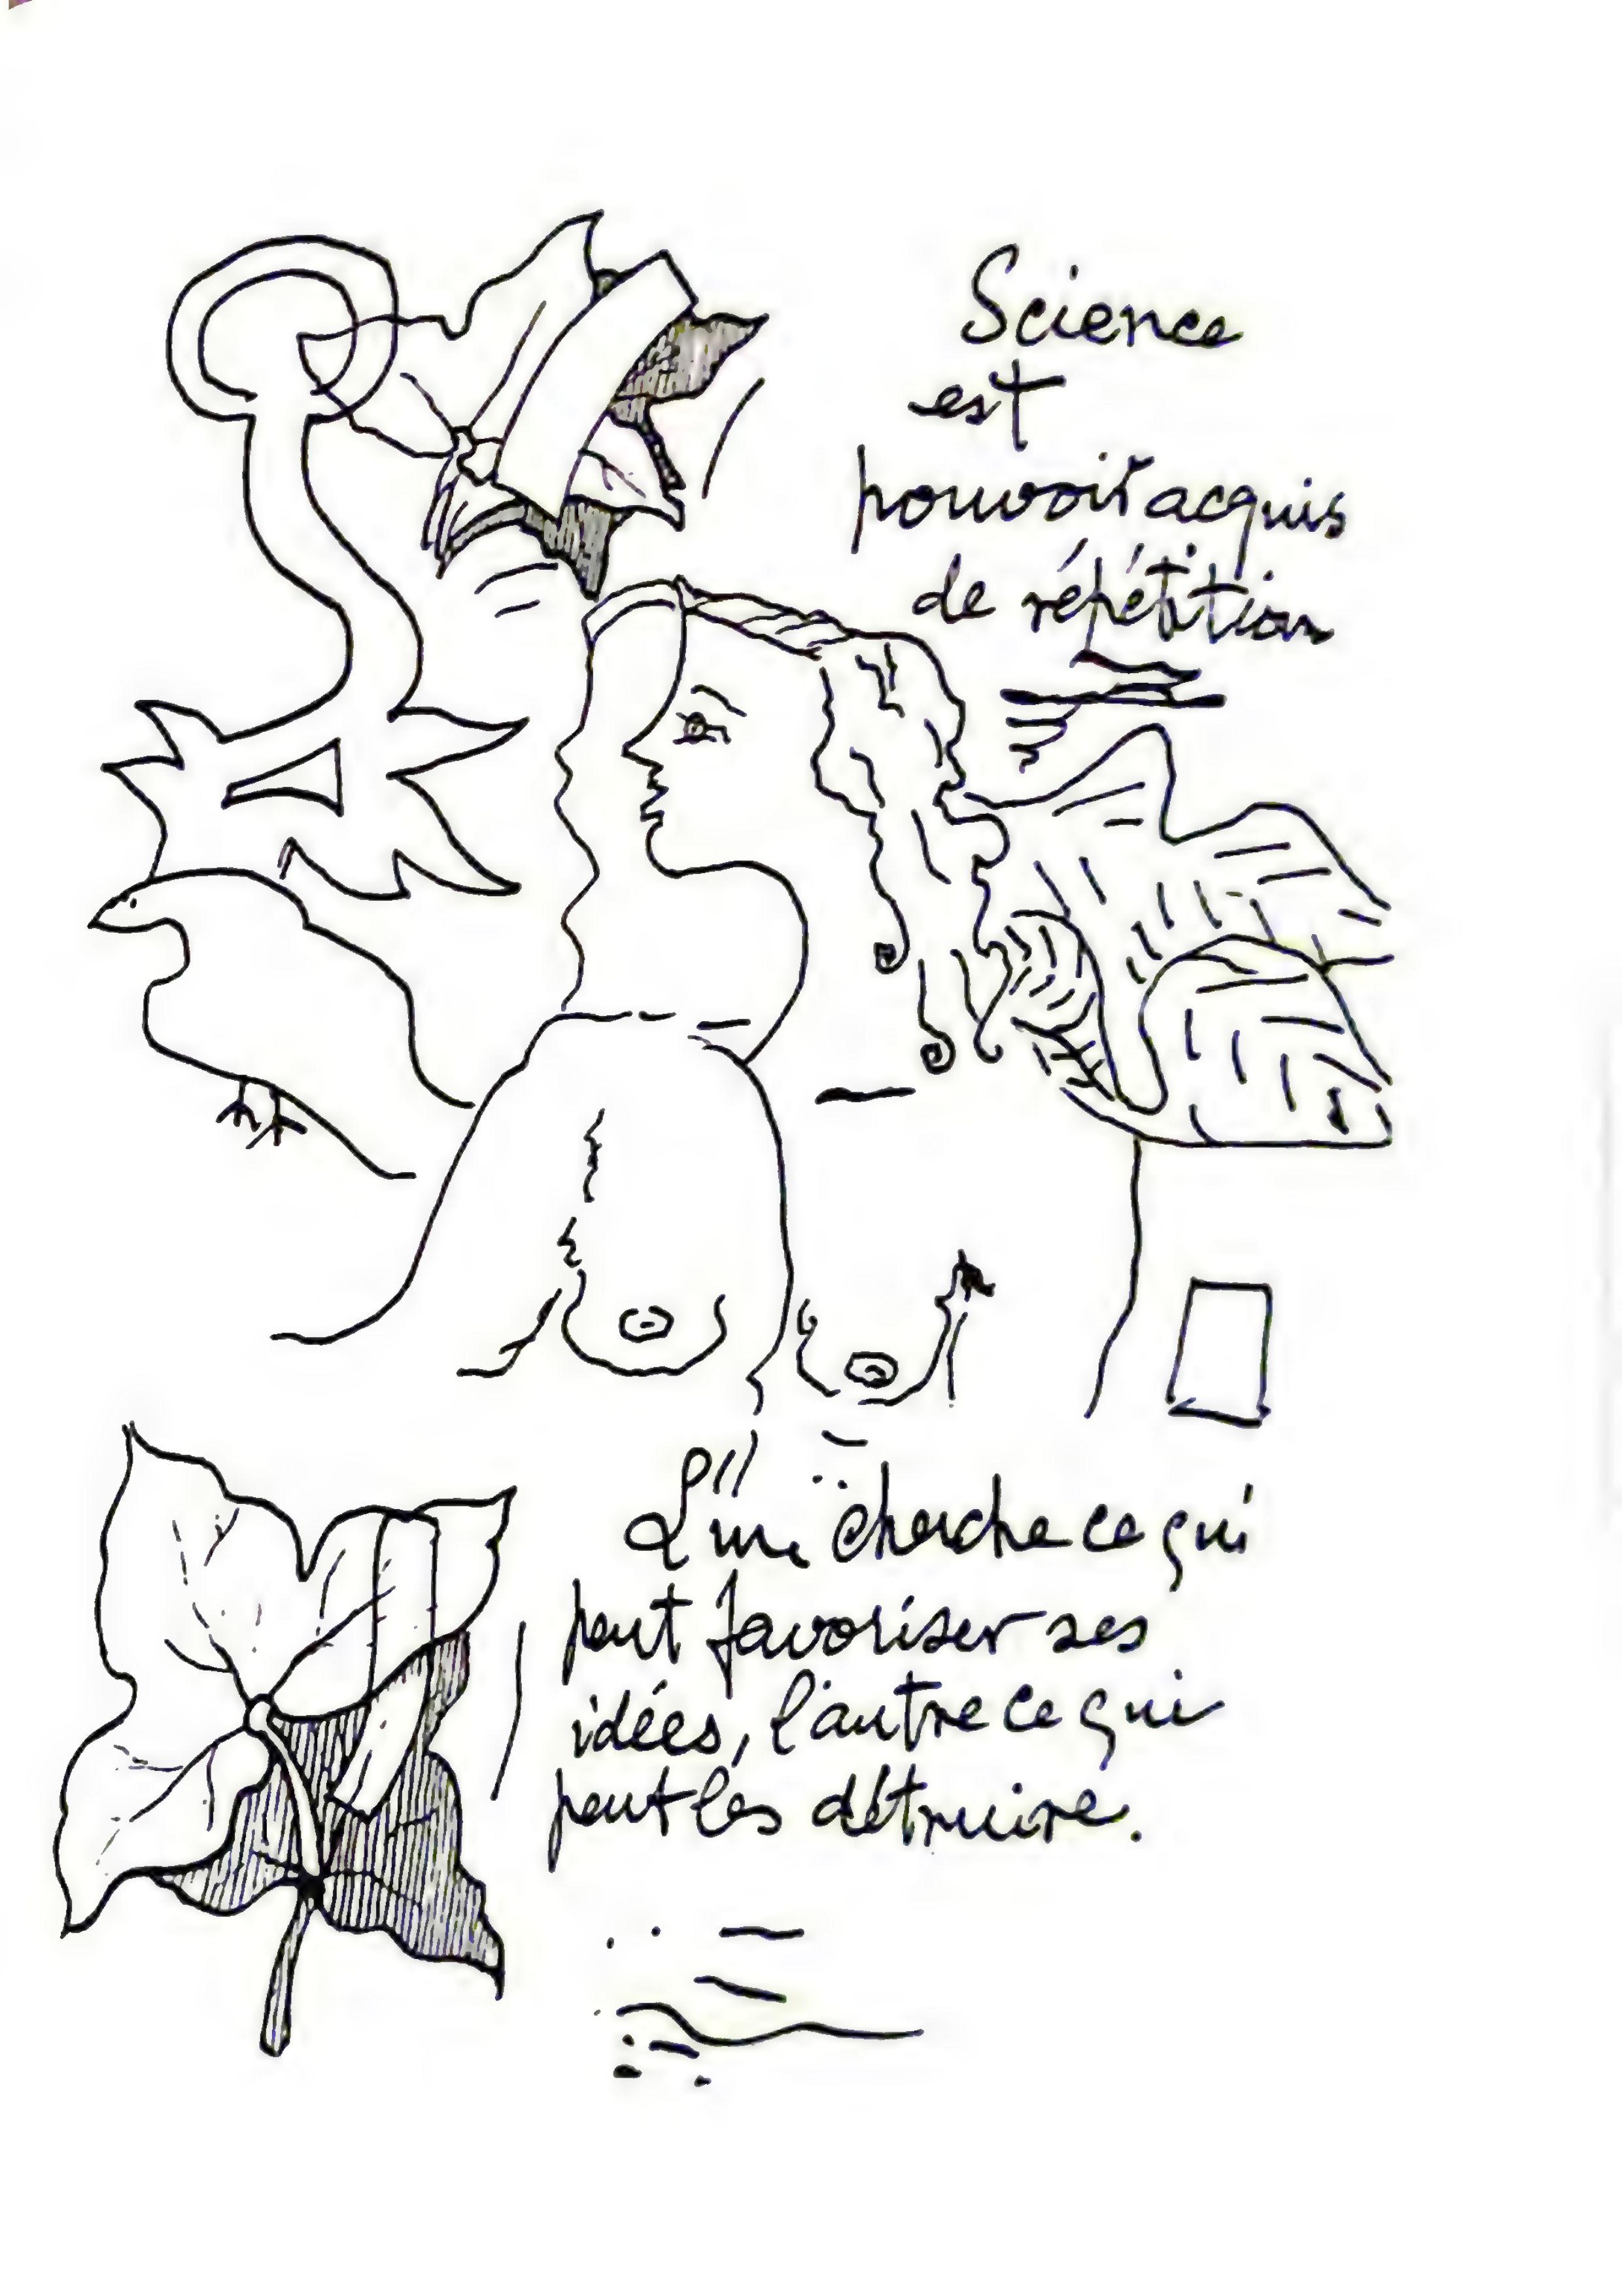 Science
est
pouvoir acquis
de répétition
L'un cherche ce qui
peut favoriser ses
idées, l'autre ce qui
peut les détruire.